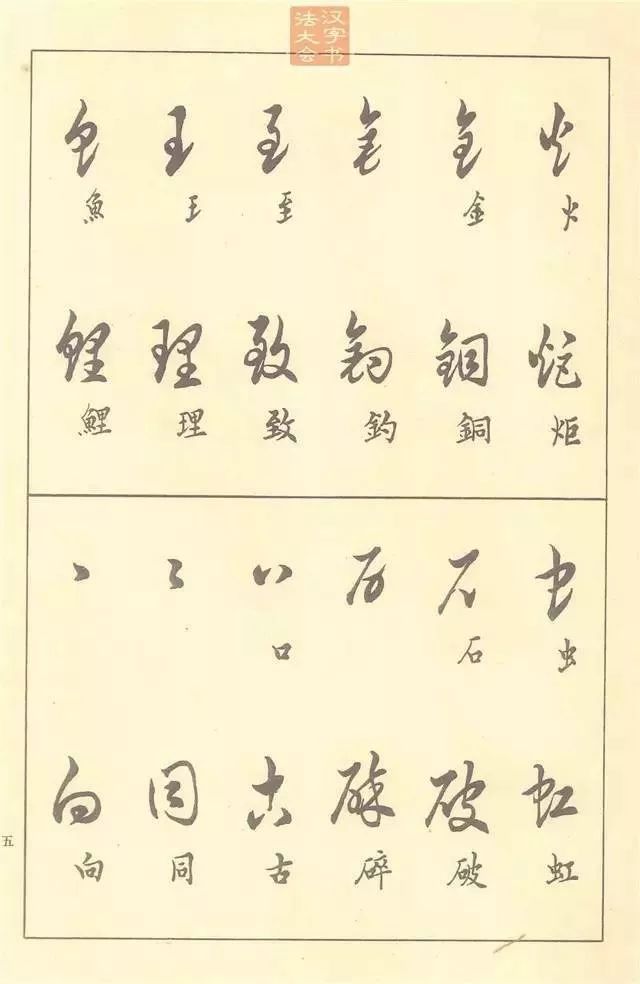 汉字书法大会
火 金 至 王 魚
炬 銅 鈞 致 理 鯉
虫 石 口
虹 破 碎 古 同 向
五